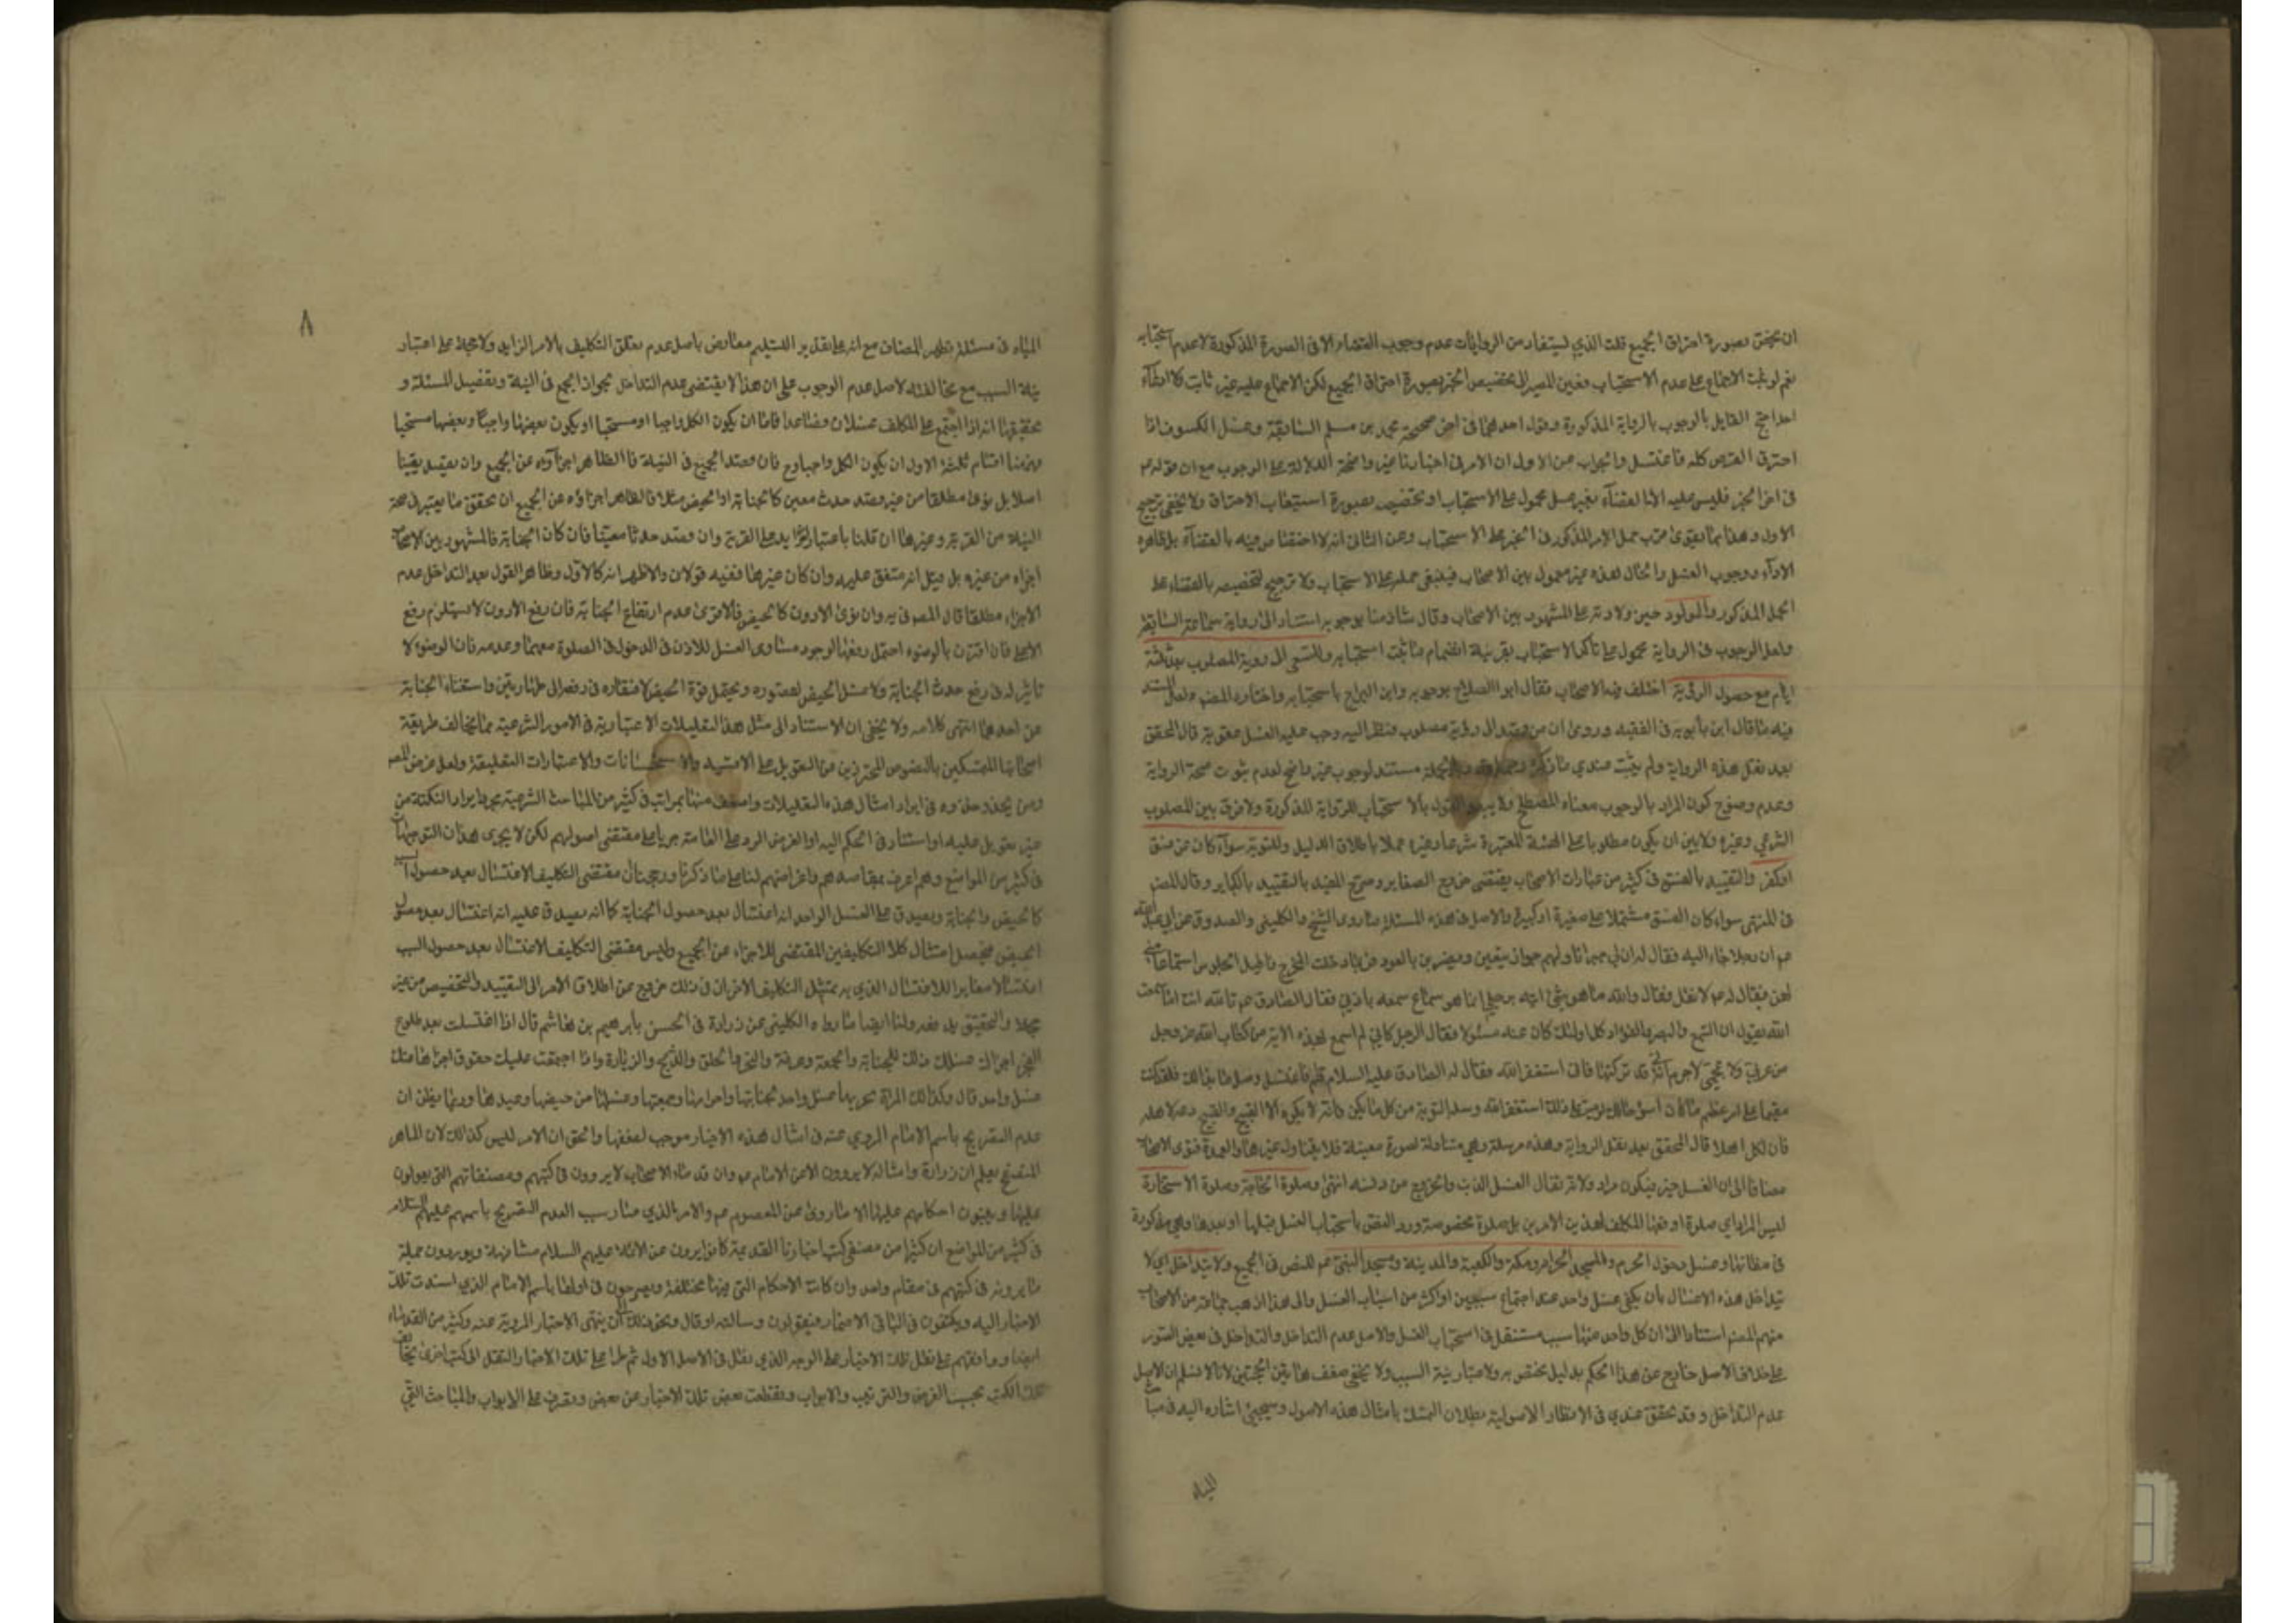 ان يختص بصورة احتراق الجميع قلت الذي يستفاد من الروايات عدم وجوب القضاء الا فى الصورة المذكورة لا عدم استحبابه
نعم لو ثبت الاجماع على عدم الاستحباب فعين المصير الى تخصيص الخبر بصورة احتراق الجميع لكن الاجماع عليه غير ثابت كما
احتج القايل بالوجوب بالرواية المذكورة وقول احدهما فى صحيحة محمد بن مسلم السابقة وغسل الكسوف اذا
احترق القرص كله فاغتسل والجواب عن الاول ان الامر فى اخبارنا غير واضحة الدلالة على الوجوب مع ان قوله ع
فى اخر الخبر فليس عليه الا القضاء بغير غسل محمول على الاستحباب او تخصيص بصورة استيعاب الاحتراق ولا يخفى ترجيح
الاول وهذا مما يقوى قرب حمل الامر المذكور فى الخبر على الاستحباب وعن الثانى انه لا اختصاص فيه بالقضاء بل ظاهره
الاداء ووجوب الغسل والحال هذه غير معمول بين الاصحاب فينبغى حمله على الاستحباب ولا ترجيح لتخصيصه بالقضاء على
الحمل المذكور والمولود حين ولادته على المشهور بين الاصحاب وقال شاذ منا بوجوبه استنادا الى رواية سماعة السابقة
ولعل الوجوب فى الرواية محمول على تأكد الاستحباب بقرينة انضمام ما ثبت استحبابه والسعى الى روية المصلوب بعد ثلثة
ايام مع حصول الروية اختلف فيه الاصحاب فقال ابو الصلاح بوجوبه وابن البراج باستحبابه واختاره المصنف ولعل المستند
فيه ما قال ابن بابويه فى الفقيه وروى ان من قصد الى روية مصلوب فنظر اليه وجب عليه الغسل عقوبة قال المحقق
بعد نقل هذه الرواية ولم يثبت عندي ما ذكره وبالجملة مستند الوجوب غير واضح لعدم ثبوت صحة الرواية
وعدم وضوح كون المراد بالوجوب معناه المصطلح ولا يبعد القول بالاستحباب للرواية المذكورة ولا فرق بين المصلوب
الشرعي وغيره ولا بين ان يكون مطلوبا على الهيئة المعتبرة شرعا وغيره عملا باطلاق الدليل وللتوبة سواء كان عن فسق
او كفر والتقييد بالفسق فى كثير من عبارات الاصحاب يقتضى خروج الصغاير وصرح المفيد بالتقييد بالكباير وقال المصنف
فى المنتهى سواء كان الفسق مشتملا على صغيرة او كبيرة والاصل فى هذه المسئلة ما روى الشيخ والكلينى والصدوق عن ابي عبد الله
ع ان رجلا جاء اليه فقال له ان لي جيرانا ولهم جوار يتغنين ويضربن بالعود فربما دخلت المخرج فاطيل الجلوس استماعا مني
لهن فقال له ع لا تفعل فقال والله ما هو شئ اتيه برجلي انما هو سماع اسمعه باذني فقال الصادق ع تالله انت اما سمعت
الله يقول ان السمع والبصر والفؤاد كل اولئك كان عنه مسئولا فقال الرجل كاني لم اسمع بهذه الاية من كتاب الله عز وجل
من عربي ولا عجمي لا جرم اني قد تركتها فانى استغفر الله فقال له الصادق عليه السلام قم فاغتسل وصل ما بدا لك فلقد كنت
مقيما على امر عظيم ما كان اسوء حالك لو مت على ذلك استغفر الله وسله التوبة من كل ما يكره فانه لا يكره الا القبيح والقبيح دعه لاهله
فان لكل اهلا قال المحقق بعد نقل الرواية وهذه مرسلة وهي متناولة لصورة معينة فلا يتناول غيرها والعمدة فتوى الاصحاب
مضافا الى ان الغسل خير فيكون مرادا ولانه تفال لغسل الذنب والخروج من دنسه انتهى وصلوة الحاجة وصلوة الاستخارة
ليس المراد اي صلوة اوقعها المكلف لهذين الامرين بل صلوة مخصوصة ورد النص باستحباب الغسل قبلها او بعدها وهي مذكورة
فى مظانها وغسل دخول الحرم والمسجد الحرام ومكة والكعبة والمدينة ومسجد النبى ع م للنص فى الجميع ولا يتداخل اي لا
يتداخل هذه الاغسال بان يكفى غسل واحد عند اجتماع سببين او اكثر من اسباب الغسل والى هذا ذهب جماعة من الاصحاب
منهم المصنف استنادا الى ان كل واحد منها سبب مستقل فى استحباب الغسل والاصل عدم التداخل والتداخل فى بعض الصور
على خلاف الاصل خارج عن هذا الحكم بدليل يختص به ولاعتبار نية السبب ولا يخفى ضعف هاتين الحجتين لانا لا نسلم ان الاصل
عدم التداخل وقد تحقق عندي فى الانظار الاصولية بطلان التمسك بامثال هذه الاصول وسيجئ اشارة اليه فى
المياه
٨
المياه فى مسئلة تطهر المضاف مع انه على تقدير التسليم معارض باصل عدم تعلق التكليف بالامر الزايد ولا على اعتبار
نية السبب مع مخالفته لاصل عدم الوجوب على ان هذا لا يقتضى عدم التداخل لجواز الجمع فى النية وتفصيل المسئلة و
تحقيقها انه اذا اجتمع على المكلف غسلان فصاعدا فاما ان يكون الكل واجبا او مستحبا او يكون بعضها واجبا وبعضها مستحبا
فههنا اقسام ثلثة الاول ان يكون الكل واجبا وح فان قصد الجميع فى النية فالظاهر اجزاؤه عن الجميع وان
اصلا بل نوى مطلقا من غير قصد حدث معين كالجنابة او الحيض مثلا فالظاهر اجزاؤه عن الجميع ان تحقق ما يعتبر فى صحة
النية من القربة وغيرها ان قلنا باعتبار الزايد على القربة وان قصد حدثا معينا فان كان الجنابة فالمشهور بين الاصحاب
اجزاه من غيره بل قيل انه متفق عليه وان كان غيرها ففيه قولان والاظهر انه كالاول وظاهر القول بعد التداخل عدم
الاجزاء مطلقا قال المصنف فى يه وان نوى الادون كالحيض فالاقوى عدم ارتفاع الجنابة فان رفع الادون لا يستلزم رفع
الاعلى فان اقترن بالوضوء احتمل رفعها لوجود مساوى الغسل للاذن فى الدخول فى الصلوة معهما وعدمه فان الوضوء لا
تاثير له فى رفع حدث الجنابة ولا غسل الحيض لقصوره ويحتمل قوة الحيض لافتقاره فى رفعه الى طهارتين واستغناء الجنابة
عن احدهما انتهى كلامه ولا يخفى ان الاستناد الى مثل هذا التعليلات الاعتبارية فى الامور الشرعية مما يخالف طريقة
اصحابنا المتمسكين بالنصوص المتحرزين عن التعويل على الاقيسة والاستحسانات والاعتبارات التعليقة ولعل غرض المصنف
ومن يحذو حذوه فى ايراد امثال هذه التعليلات واضعف منها بمراتب فى كثير من المباحث الشرعية مجرد ايراد النكتة من
غير تعويل عليه او استناد فى الحكم اليه او الغرض الرد على العامة جريا على مقتضى اصولهم لكن لا يجرى هذان التوجيهان
فى كثير من المواضع وهم اعرف بمقاصدهم واغراضهم لنا على ما ذكرنا ورجحنا ان مقتضى التكليف الاغتسال بعد حصول السبب
كالحيض والجنابة ويصدق على الغسل الواحد انه اغتسال بعد حصول الجنابة كما انه يصدق عليه انه اغتسال بعد حصول
الحيض فيحصل امتثال كلا التكليفين المقتضى للاجزاء عن الجميع وليس مقتضى التكليف الاغتسال بعد حصول السبب
اغتسالا مغايرا للاغتسال الذي به يمتثل التكليف الاخر فان فى ذلك خروج عن اطلاق الامر الى التقييد والتخصيص من غير
والتحقيق ولنا ايضا ما رواه الكلينى عن زرارة فى الحسن بابرهيم بن هاشم قال اذا اغتسلت بعد طلوع
الفجر اجزاك غسلك ذلك للجنابة والجمعة وعرفة والنحر والحلق والذبح والزيارة واذا اجتمعت عليك حقوق اجزاها عنك
غسل واحد قال وكذلك المراة يجزيها غسل واحد لجنابتها واحرامها وجمعتها وغسلها من حيضها وعيدها وربما يظن ان
عدم التصريح باسم الامام المروي عنه فى امثال هذه الاخبار موجب لضعفها والحق ان الامر ليس كذلك لان الماهر
المتصفح يعلم ان زرارة وامثاله لا يروون الا عن الامام ع وان قدماء الاصحاب لا يروون فى كتبهم ومصنفاتهم التي يعولون
عليها ويبنون احكامهم عليها الا ما روى عن المعصوم ع والامر الذي صار سبب العدم التصريح باسمهم عليهم السلام
فى كثير من المواضع ان كثيرا من مصنفى كتب اخبارنا القديمة كانوا يروون عن الائمة عليهم السلام مشافهة ويوردون جملة
ما يروونه فى كتبهم فى مقام واحد وان كانت الاحكام التي فيها مختلفة ويصرحون فى اولها باسم الامام الذي اسندت تلك
الاخبار اليه ويكتفون فى الباقى الاضمار فيقولون وسالته او قال ونحو ذلك الى ان ينتهى الاخبار المروية عنه وكثير من القدماء
ايضا وافقهم على نقل تلك الاخبار على الوجه الذي نقل فى الاصل الاول ثم طرا على تلك الاخبار النقل الى كتب اخرى
تلك الكتب بحسب الغرض والترتيب والابواب وقطعت بعض تلك الاخبار عن بعض وتفرق على الابواب والمباحث التي